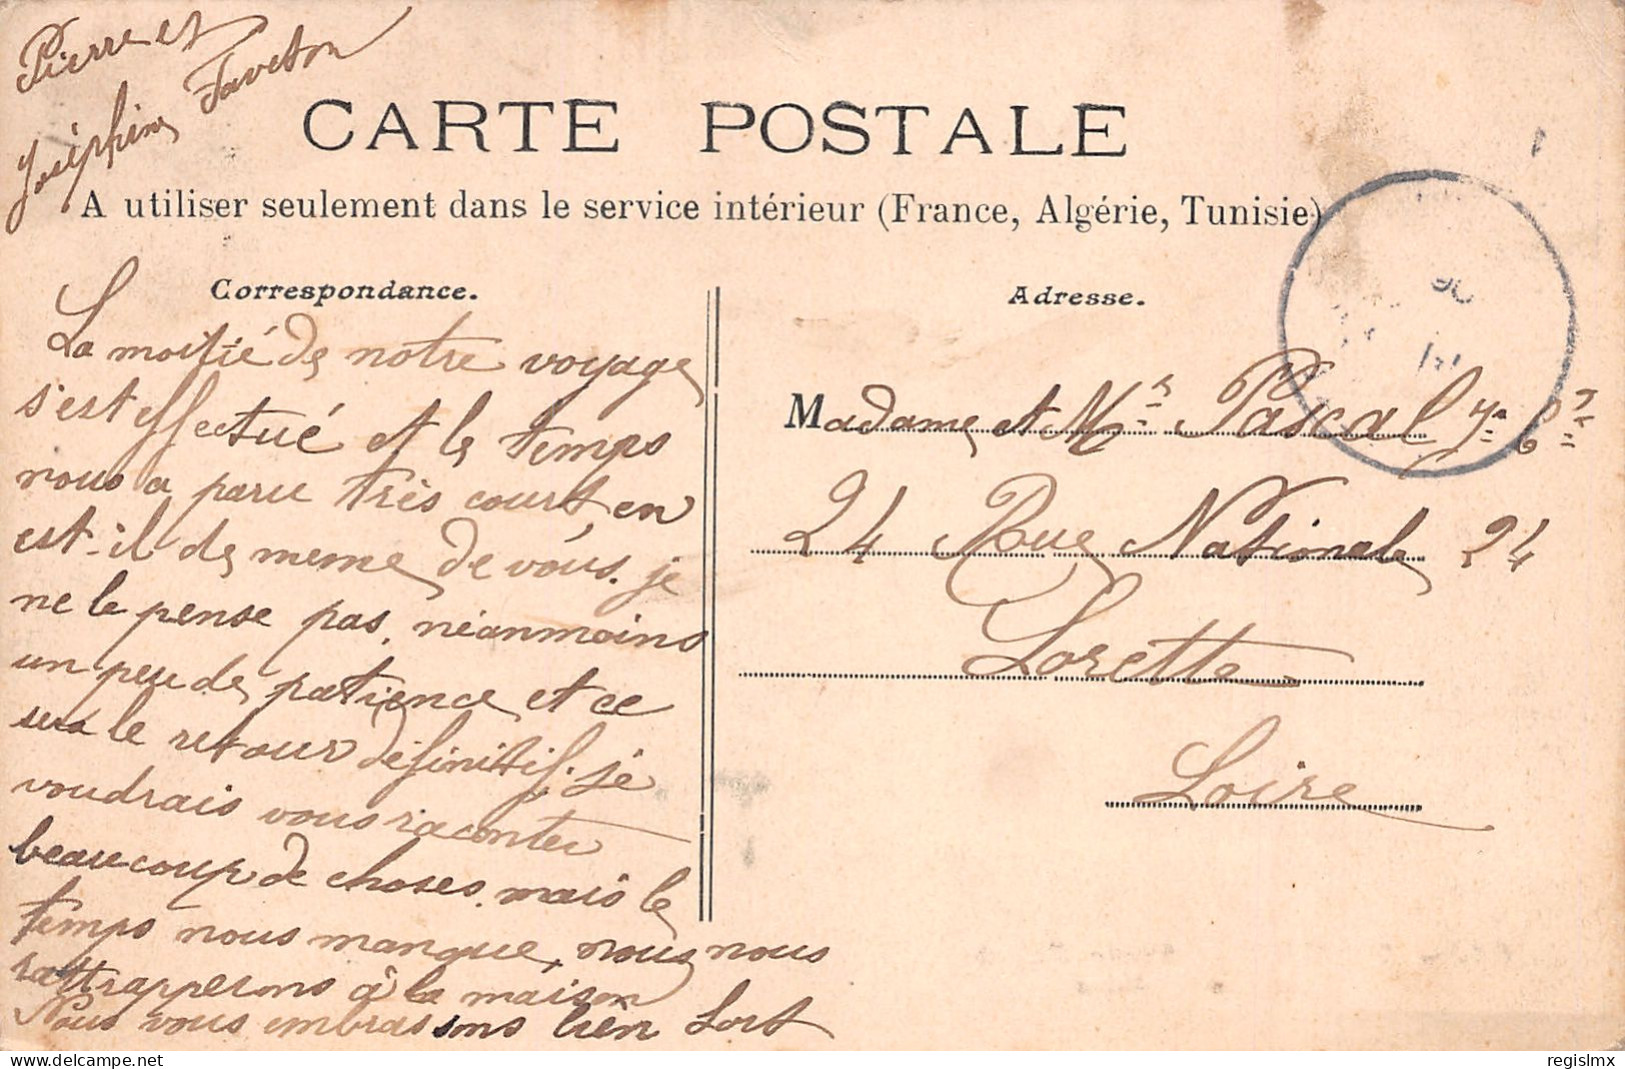 Pierre et
Joséphine Faveton
CARTE POSTALE
A utiliser seulement dans le service intérieur (France, Algérie, Tunisie)
Correspondance.
La moitié de notre voyage
s'est effectué et le temps
nous a paru très court en
est-il de meme de vous. je
ne le pense pas, néanmoins
un peu de patience et ce
sera le retour définitif. je
voudrais vous raconter
beaucoup de choses, mais le
temps nous manque, nous nous
rattrapperons à la maison
Nous vous embrassons bien fort
Adresse.
Madame et Mr Pascal
24 Rue Nationale 24
Lorette
Loire
regislmx
www.delcampe.net